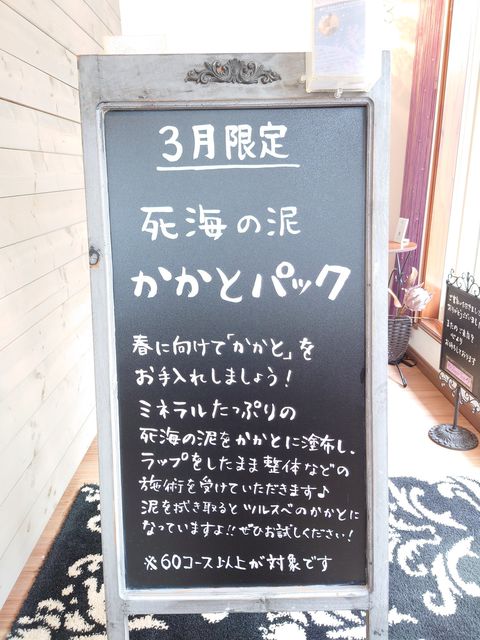 3月限定
死海の泥
かかとパック
春に向けて「かかと」を
お手入れしましょう!
ミネラルたっぷりの
死海の泥をかかとに塗布し、
ラップをしたまま整体などの
施術を受けていただきます♪
泥を拭き取るとツルスベのかかとに
なっていますよ!!ぜひお試しください!
※60コース以上が対象です
ありがとうございました
またのご来店を
心より
お待ちしております